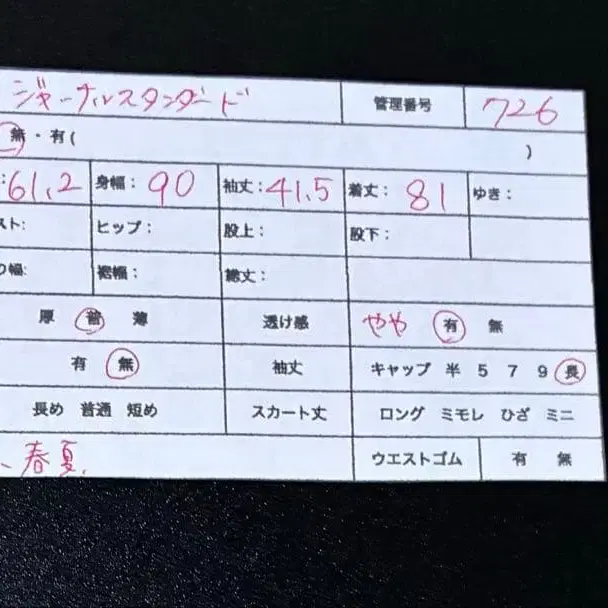 ジャーナルスタンダード 管理番号 726
無・有( )
:61.2 身幅: 90 袖丈:41.5 着丈: 81 ゆき:
スト: ヒップ: 股上: 股下:
の幅: 裾幅: 総丈:
厚 普 薄 透け感 やや 有 無
有 無 袖丈 キャップ 半 5 7 9 長
長め 普通 短め スカート丈 ロング ミモレ ひざ ミニ
、春夏. ウエストゴム 有 無